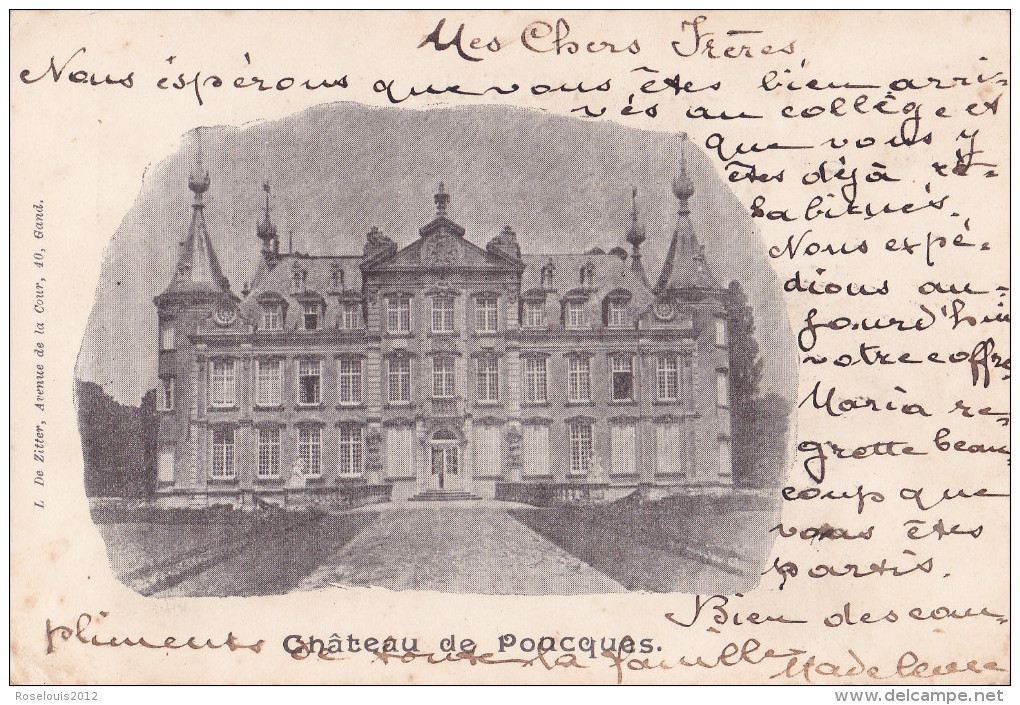 Mes Chers Frères
Nous éspérons que vous êtes bien arri-
vés au collège et
que vous y
êtes déjà ré-
habitués.
Nous expé-
dions au-
jourd'hui
votre coffre
Maria re-
grette beau-
coup que
vous êtes
partis.
Bien des com-
pliments de toute la famille Madeleine
Château de Poucques.
L. De Zitter, Avenue de la Cour, 40, Gand.
Roselouis2012
delcampe.net